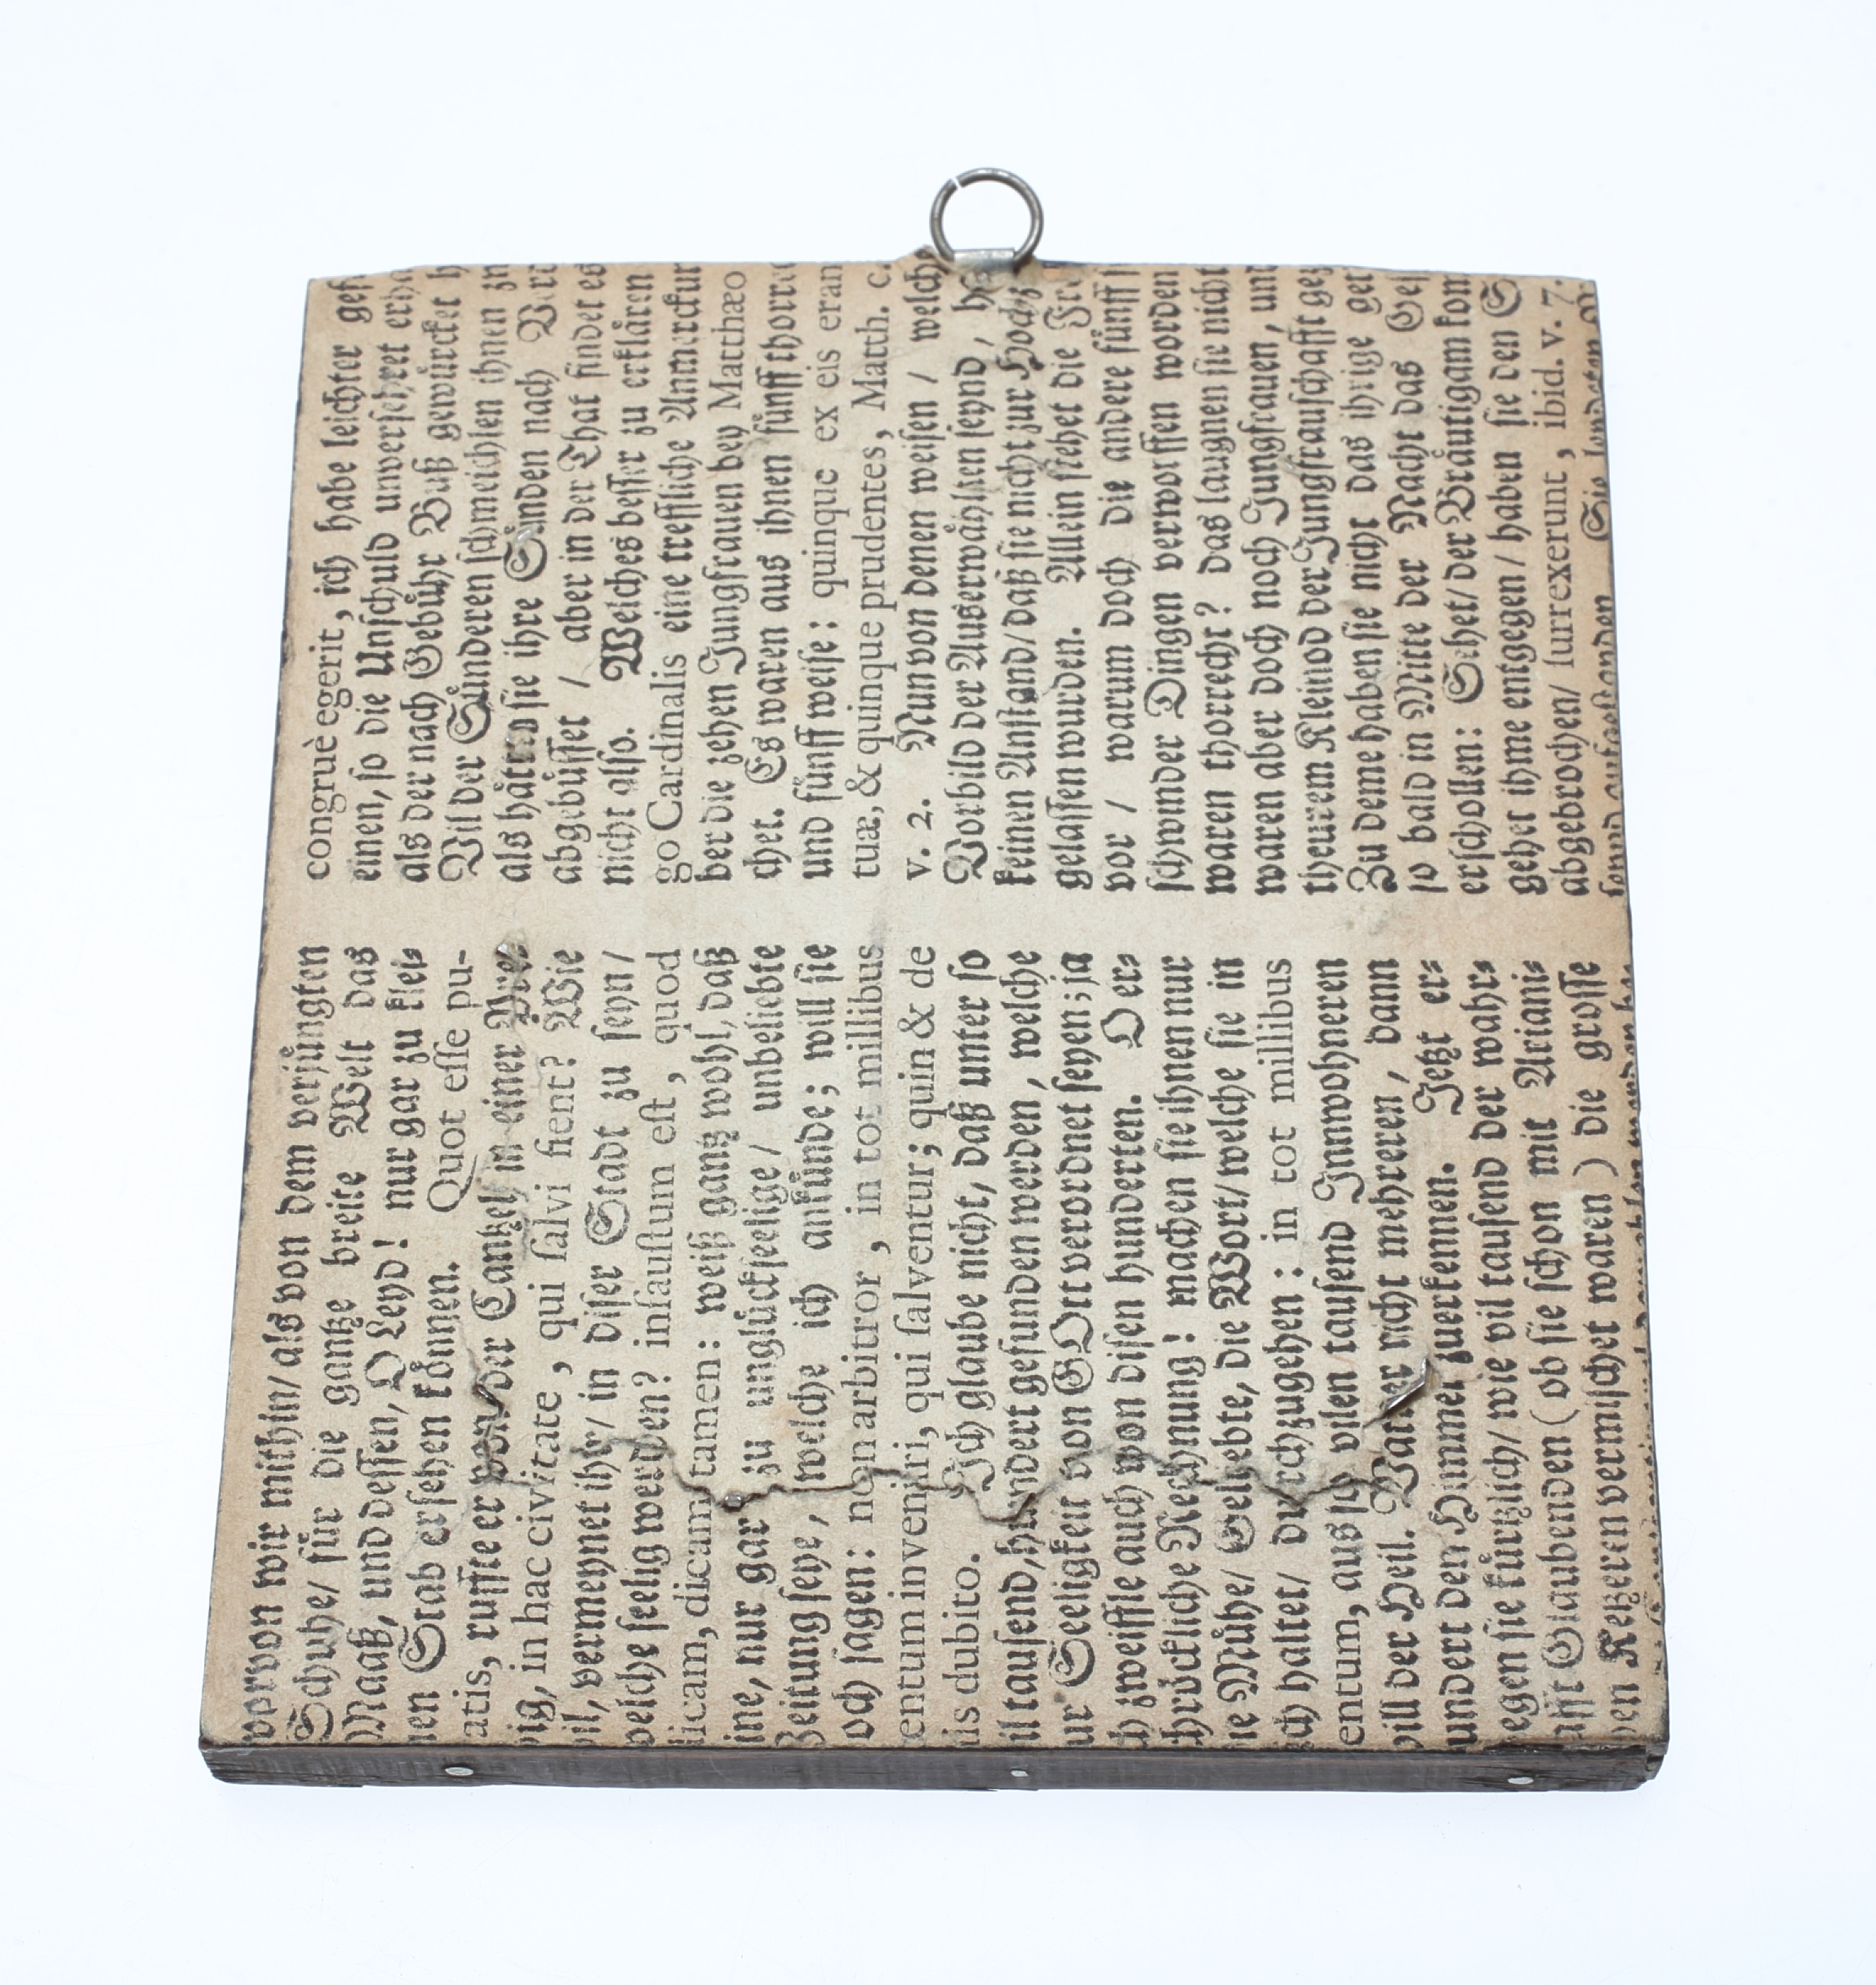 worvon wir mithin/ als von dem verjüngten
Schuhe/ für die gantze breite Welt das
Maaß, und dessen, O Leyd! nur gar zu klei-
nen Stab ersehen können. Quot esse pu-
atis, ruffte er von der Cantzel in einer
ig, in hac civitate, qui salvi fient? Wie
il, vermeynet ihr/ in diser Stadt zu seyn/
welche seelig werden? infaustum est, quod
dicam, dicam tamen: weiß gantz wohl, daß
ine, nur gar zu unglückseelige/ unbeliebte
Zeitung seye, welche ich ankünde; will sie
och sagen: non arbitror, in tot millibus
entum inveniri, qui salventur; quin & de
iis dubito. Ich glaube nicht, daß unter so
il tausend, hundert gefunden werden, welche
ur Seeligkeit von GOtt verordnet seyen; ja
ch zweiffle auch von disen hunderten. O er-
chröckliche Rechnung! machen sie ihnen nur
ie Mühe/ Geliebte, die Wort/ welche sie in
ich haltet/ durchzugehen: in tot millibus
entum, aus so vilen tausend Innwohneren
will der Heil. Vatter nicht mehreren, dann
undert den Himmel zuerkennen. Jetzt er-
egen sie kürtzlich/ wie vil tausend der wahr-
afft Glaubenden (ob sie schon mit Ariani-
hen Ketzeren vermischet waren) die grosse
congruè egerit, ich habe leichter gef
einen, so die Unschuld unversehret erha
als der nach Gebühr Buß gewürcket h
Vil der Sünderen schmeichlen ihnen
als hätten sie ihre Sünden nach
abgebüsset / aber in der That findet es
nicht also. Welches besser zu erklären
go Cardinalis eine treffliche Anmerckun
ber die zehen Jungfrauen bey Matthæo
chet. Es waren aus ihnen fünff thorrec
und fünff weise: quinque ex eis eran
tuæ, & quinque prudentes, Matth. c.
v. 2. Nun von denen weisen / welche
Vorbild der Auserwählten seynd, ha
keinen Anstand/ daß sie nicht zur Hochz
gelassen wurden. Allein stehet die Fra
vor / warum doch die andere fünff
schwinder Dingen verworffen worden
waren thorrecht? das laugnen sie nicht
waren aber doch noch Jungfrauen, un
theurem Kleinod der Jungfrauschafft gez
Zu deme haben sie nicht das ihrige get
so bald in Mitte der Nacht das Ges
erschollen: Sehet/ der Bräutigam kom
gehet ihme entgegen/ haben sie den S
abgebrochen/ surrexerunt, ibid. v. 7.
seynd aufgestanden. Sie